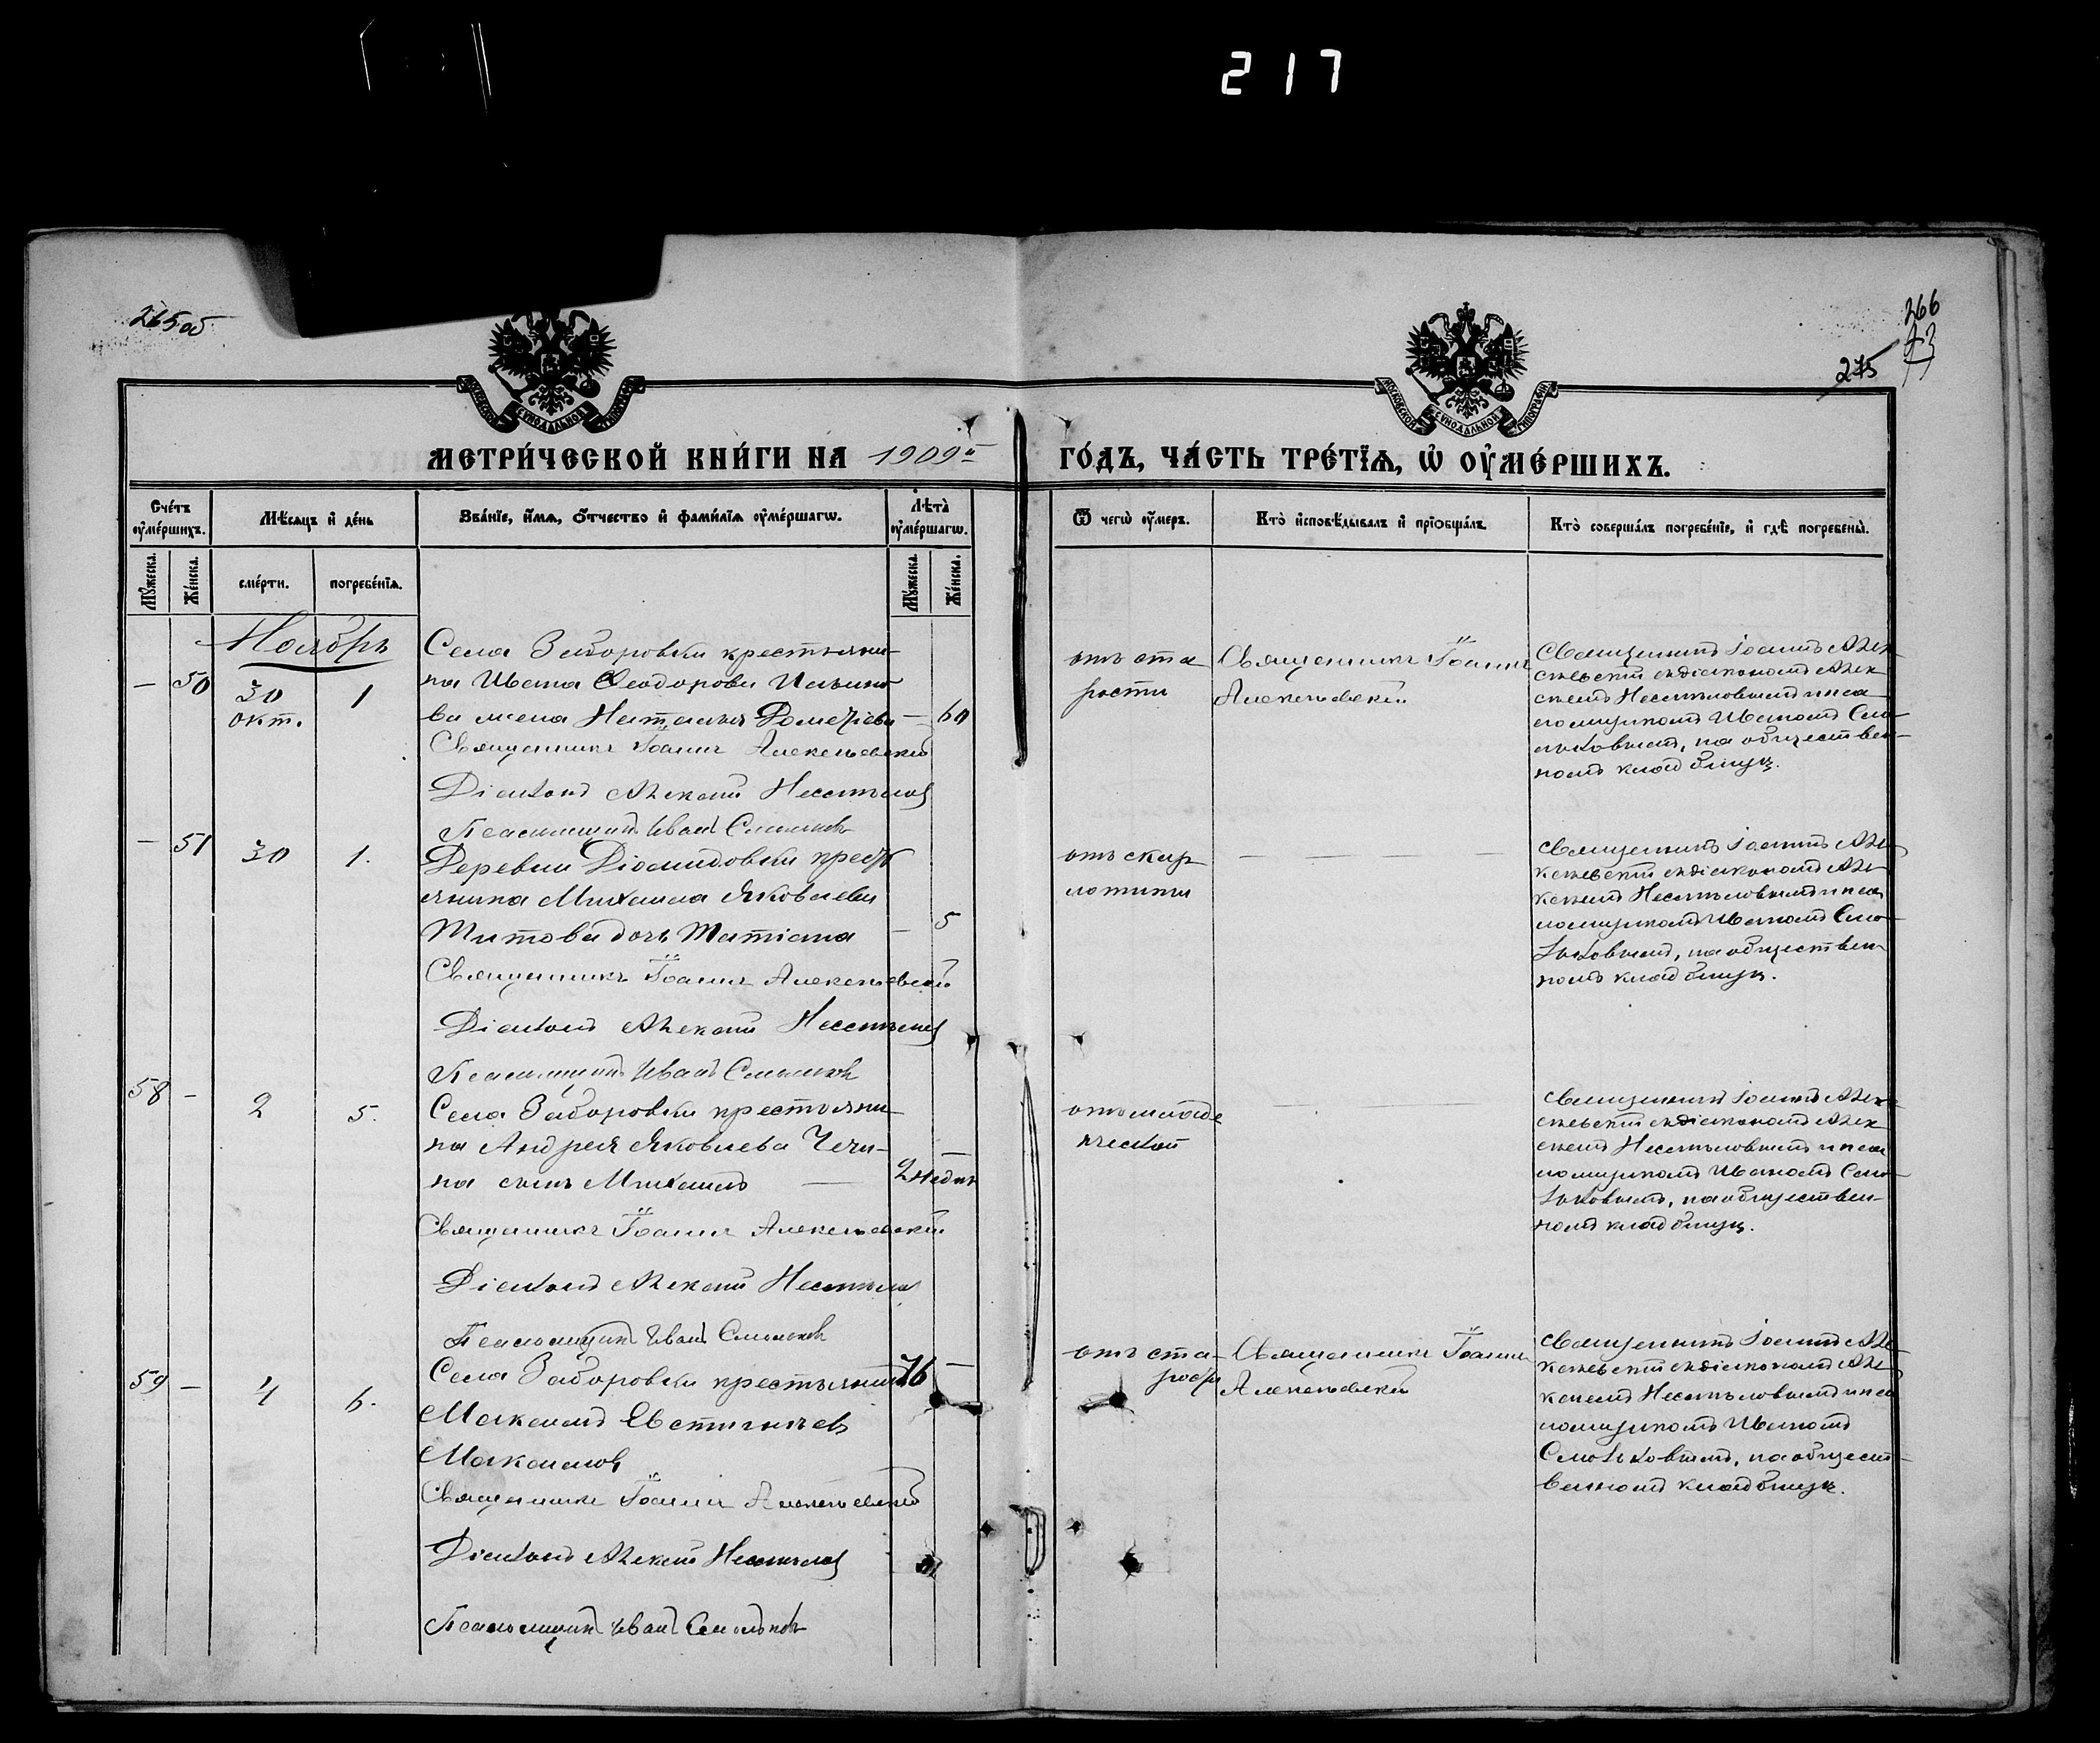 217
265об
266
275
МОСКОВСКОЙ СУНОДАЛЬНОЙ ТИПОГРАФІИ
МОСКОВСКОЙ СУНОДАЛЬНОЙ ТИПОГРАФІИ
МЕТРИ́ЧЕСКОЙ КНИ́ГИ НА 1909й ГО́ДЪ, ЧА́СТЬ ТРЕ́ТЇѦ, Ѡ҆ ОУ҆МЕ́РШИХЪ.
Сче́тъ оу҆ме́ршихъ.
Мѣ́сяцъ и҆ де́нь
Зва́нїе, и҆́мѧ, ѻ҆́тчество и҆ фами́лїѧ оу҆ме́ршагѡ.
Лѣ́та оу҆ме́ршагѡ.
Ѿ чегѡ̀ оу҆́меръ.
Кто̀ и҆сповѣ́дывалъ и҆ прїѻбща́лъ.
Кто̀ соверша́лъ погребе́нїе, и҆ гдѣ̀ погребены̀.
Мꙋ́жеска.
Же́нска.
сме́рти.
погребе́нїѧ.
Мꙋ́жеска.
Же́нска.
Ноябрь
— 50 30 окт. 1
Села Заборовки крестьяни-
на Ивана Ѳеодорова Ильино-
ва жена Наталья — 60
Священникъ Іоаннъ Алексѣевскій
Діаконъ Алексѣй Несмѣловъ
Псаломщикъ Иванъ Смольковъ
отъ ста-
рости
Священникъ Іоаннъ
Алексѣевскій
Священникъ Іоаннъ Алек-
сѣевскій съ діакономъ Алек-
сѣемъ Несмѣловымъ и пса-
ломщикомъ Иваномъ Смо-
льковымъ, на обществен-
номъ кладбищѣ.
— 51 30 1.
Деревни Діомидовки кресть-
янина Михаила Яковлева
Титова дочь Татіана — 5
Священникъ Іоаннъ Алексѣевскій
Діаконъ Алексѣй Несмѣловъ
Псаломщикъ Иванъ Смольковъ
отъ скар-
латины
— — — —
Священникъ Іоаннъ Але-
ксѣевскій съ діакономъ Але-
ксѣемъ Несмѣловымъ и пса-
ломщикомъ Иваномъ Смо-
льковымъ, на обществен-
номъ кладбищѣ.
58 — 2 5.
Села Заборовки крестьяни-
на Андрея Яковлева Чечи-
на сынъ Михаилъ — 2 недѣл —
Священникъ Іоаннъ Алексѣевскій
Діаконъ Алексѣй Несмѣловъ
Псаломщикъ Иванъ Смольковъ
отъ младе-
нческой
Священникъ Іоаннъ Алек-
сѣевскій съ діакономъ Алек-
сѣемъ Несмѣловымъ и пса-
ломщикомъ Иваномъ Смо-
льковымъ, на обществен-
номъ кладбищѣ.
59 — 4 6.
Села Заборовки крестьянинъ 76 —
Максимъ Евстигнѣевъ
Максимовъ
Священникъ Іоаннъ Алексѣевскій
Діаконъ Алексѣй Несмѣловъ
Псаломщикъ Иванъ Смольковъ
отъ ста-
рости
Священникъ Іоаннъ
Алексѣевскій
Священникъ Іоаннъ Але-
ксѣевскій съ діакономъ Але-
ксѣемъ Несмѣловымъ и пса-
ломщикомъ Иваномъ
Смольковымъ, на общест-
венномъ кладбищѣ.